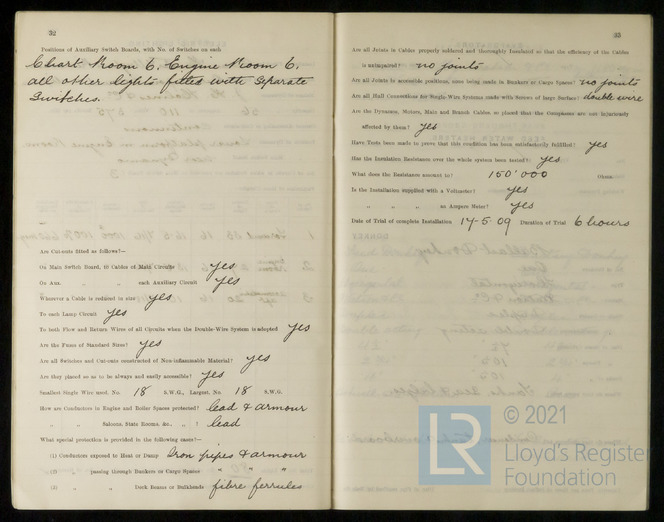 32
Positions of Auxiliary Switch Boards, with No. of Switches on each
Chart Room 6, Engine Room 6,
all other lights fitted with Separate
Switches.
Are Cut-outs fitted as follows?—
On Main Switch Board, to Cables of Main Circuits yes
On Aux. " " each Auxiliary Circuit yes
Wherever a Cable is reduced in size yes
To each Lamp Circuit yes
To both Flow and Return Wires of all Circuits when the Double-Wire System is adopted yes
Are the Fuses of Standard Sizes? yes
Are all Switches and Cut-outs constructed of Non-inflammable Material? yes
Are they placed so as to be always and easily accessible? yes
Smallest Single Wire used, No. 18 S.W.G., Largest, No. 18 S.W.G.
How are Conductors in Engine and Boiler Spaces protected? lead & armour
" " Saloons, State Rooms, &c., " ? lead
What special protection is provided in the following cases?—
(1) Conductors exposed to Heat or Damp Iron pipes & armour
(2) " passing through Bunkers or Cargo Spaces " " "
(3) " " Deck Beams or Bulkheads fibre ferrules
33
Are all Joints in Cables properly soldered and thoroughly Insulated so that the efficiency of the Cables
is unimpaired? no joints
Are all Joints in accessible positions, none being made in Bunkers or Cargo Spaces? no joints
Are all Hull Connections for Single-Wire Systems made with Screws of large Surface? double wire
Are the Dynamos, Motors, Main and Branch Cables so placed that the Compasses are not injuriously
affected by them? yes
Have Tests been made to prove that this condition has been satisfactorily fulfilled? yes
Has the Insulation Resistance over the whole system been tested? yes
What does the Resistance amount to? 150'000 Ohms.
Is the Installation supplied with a Voltmeter? yes
" " " an Ampere Meter? yes
Date of Trial of complete Installation 14-5-09 Duration of Trial 6 hours
LR
© 2021
Lloyd's Register
Foundation